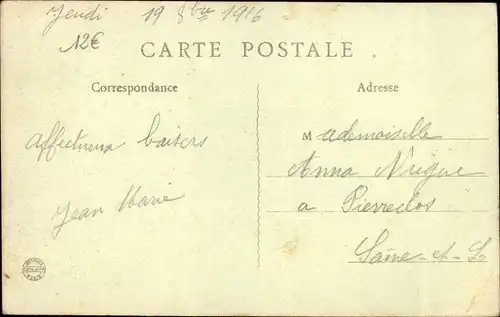 Jeudi 19 8bre 1916
12€
CARTE POSTALE
Correspondance
Adresse
Affectueux baisers
Jean Marie
Mademoiselle
Anna
a Pierreclos
Saône-et-L